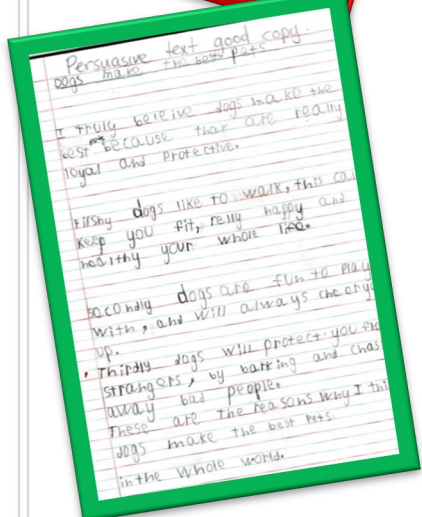 Persuasive text good copy.
Dogs make the best pets
I truly beleive dogs make the
best pet because thay are really
loyal and protective.
Firshy dogs like to walk, this ca
keep you fit, relly happy and
healthy your whole life.
secondly dogs are fun to play
with, and will always cheery
up.
Thirdly dogs will protect you fro
strangers, by barking and chas
away bad people.
These are the reasons why I thi
dogs make the best pets
in the whole world.